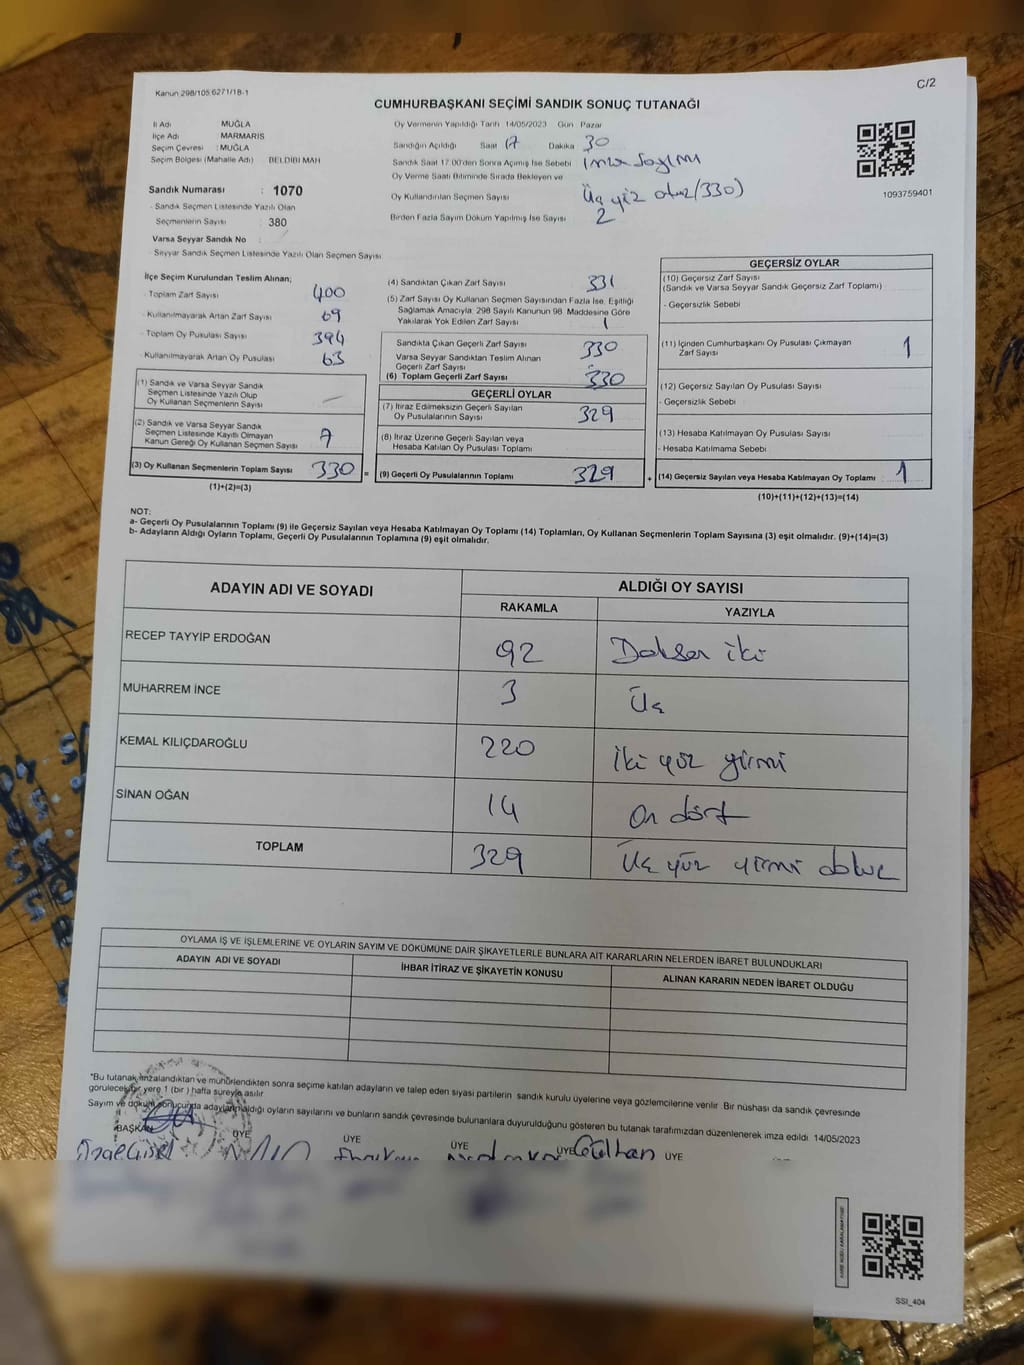 C/2
Kanun 298/105 6271/18-1
CUMHURBAŞKANI SEÇİMİ SANDIK SONUÇ TUTANAĞI
İl Adı MUĞLA
İlçe Adı MARMARİS
Seçim Çevresi : MUĞLA
Seçim Bölgesi (Mahalle Adı) BELDİBİ MAH
Sandık Numarası : 1070
- Sandık Seçmen Listesinde Yazılı Olan
Seçmenlerin Sayısı : 380
Varsa Seyyar Sandık No :
- Seyyar Sandık Seçmen Listesinde Yazılı Olan Seçmen Sayısı
Oy Vermenin Yapıldığı Tarih 14/05/2023 Gün Pazar
Sandığın Açıldığı Saat 17 Dakika 30
Sandık Saat 17:00'den Sonra Açılmış İse Sebebi imza Sayımı
Oy Verme Saati Bitiminde Sırada Bekleyen ve
Oy Kullandırılan Seçmen Sayısı Üç yüz otuz (330)
Birden Fazla Sayım Döküm Yapılmış İse Sayısı 2
1093759401
İlçe Seçim Kurulundan Teslim Alınan;
- Toplam Zarf Sayısı 400
- Kullanılmayarak Artan Zarf Sayısı 69
- Toplam Oy Pusulası Sayısı 394
- Kullanılmayarak Artan Oy Pusulası 63
(1) Sandık ve Varsa Seyyar Sandık
Seçmen Listesinde Yazılı Olup
Oy Kullanan Seçmenlerin Sayısı
(2) Sandık ve Varsa Seyyar Sandık
Seçmen Listesinde Kayıtlı Olmayan
Kanun Gereği Oy Kullanan Seçmen Sayısı
(3) Oy Kullanan Seçmenlerin Toplam Sayısı 330 =
(1)+(2)=(3)
(4) Sandıktan Çıkan Zarf Sayısı 331
(5) Zarf Sayısı Oy Kullanan Seçmen Sayısından Fazla İse, Eşitliği
Sağlamak Amacıyla; 298 Sayılı Kanunun 98. Maddesine Göre
Yakılarak Yok Edilen Zarf Sayısı 1
Sandıkta Çıkan Geçerli Zarf Sayısı 330
Varsa Seyyar Sandıktan Teslim Alınan
Geçerli Zarf Sayısı
(6) Toplam Geçerli Zarf Sayısı 330
GEÇERLİ OYLAR
(7) İtiraz Edilmeksizin Geçerli Sayılan
Oy Pusulalarının Sayısı 329
(8) İtiraz Üzerine Geçerli Sayılan veya
Hesaba Katılan Oy Pusulası Toplamı
(9) Geçerli Oy Pusulalarının Toplamı 329 +
GEÇERSİZ OYLAR
(10) Geçersiz Zarf Sayısı
(Sandık ve Varsa Seyyar Sandık Geçersiz Zarf Toplamı)
- Geçersizlik Sebebi
(11) İçinden Cumhurbaşkanı Oy Pusulası Çıkmayan
Zarf Sayısı 1
(12) Geçersiz Sayılan Oy Pusulası Sayısı
- Geçersizlik Sebebi
(13) Hesaba Katılmayan Oy Pusulası Sayısı
- Hesaba Katılmama Sebebi
(14) Geçersiz Sayılan veya Hesaba Katılmayan Oy Toplamı 1
(10)+(11)+(12)+(13)=(14)
NOT:
a- Geçerli Oy Pusulalarının Toplamı (9) ile Geçersiz Sayılan veya Hesaba Katılmayan Oy Toplamı (14) Toplamları, Oy Kullanan Seçmenlerin Toplam Sayısına (3) eşit olmalıdır. (9)+(14)=(3)
b- Adayların Aldığı Oyların Toplamı, Geçerli Oy Pusulalarının Toplamına (9) eşit olmalıdır.
ADAYIN ADI VE SOYADI ALDIĞI OY SAYISI
RAKAMLA YAZIYLA
RECEP TAYYİP ERDOĞAN 92 Doksan iki
MUHARREM İNCE 3 Üç
KEMAL KILIÇDAROĞLU 220 İki yüz yirmi
SİNAN OĞAN 14 On dört
TOPLAM 329 Üç yüz yirmi dokuz
OYLAMA İŞ VE İŞLEMLERİNE VE OYLARIN SAYIM VE DÖKÜMÜNE DAİR ŞİKAYETLERLE BUNLARA AİT KARARLARIN NELERDEN İBARET BULUNDUKLARI
ADAYIN ADI VE SOYADI İHBAR İTİRAZ VE ŞİKAYETİN KONUSU ALINAN KARARIN NEDEN İBARET OLDUĞU
"Bu tutanak imzalandıktan ve mühürlendikten sonra seçime katılan adayların ve talep eden siyasi partilerin sandık kurulu üyelerine veya gözlemcilerine verilir. Bir nüshası da sandık çevresinde
görülecek bir yere 1 (bir ) hafta süreyle asılır
Sayım ve döküm sonucunda adayların aldığı oyların sayılarını ve bunların sandık çevresinde bulunanlara duyurulduğunu gösteren bu tutanak tarafımızdan düzenlenerek imza edildi. 14/05/2023
BAŞKAN ÜYE ÜYE ÜYE ÜYE ÜYE
SSI_404